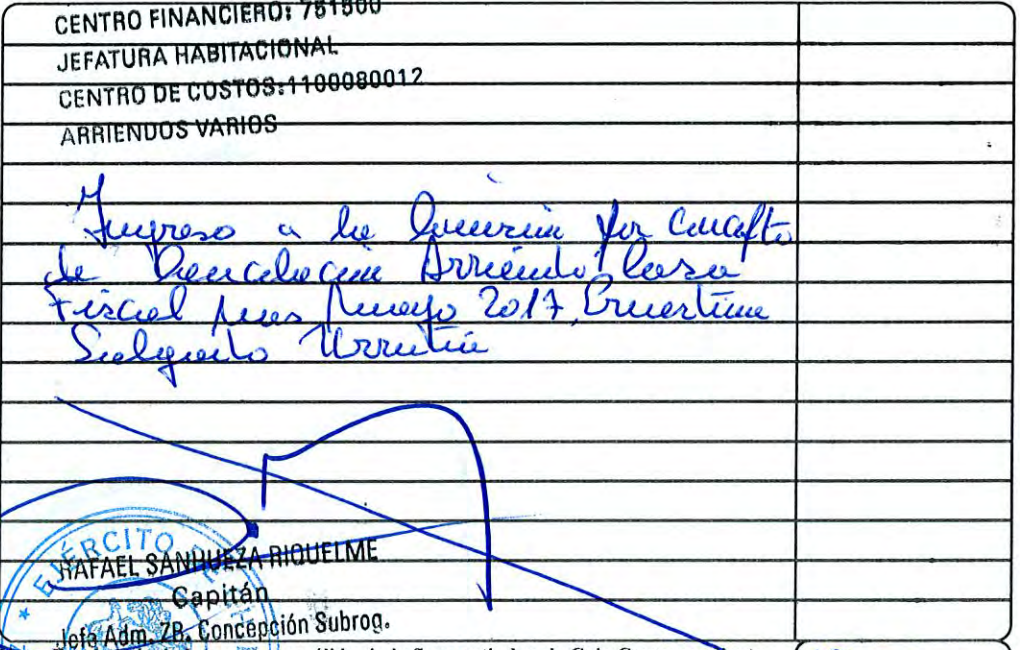 CENTRO FINANCIERO: 751500
JEFATURA HABITACIONAL
CENTRO DE COSTOS:1100080012
ARRIENDOS VARIOS
Ingreso a la por concepto
de Cancelación Arriendo Casa
Fiscal mes mayo 2017, Ernestina
Salgado Urrutia
EJÉRCITO
RAFAEL SANHUEZA RIQUELME
Capitán
Jefe Adm. ZB. Concepción Subrog.